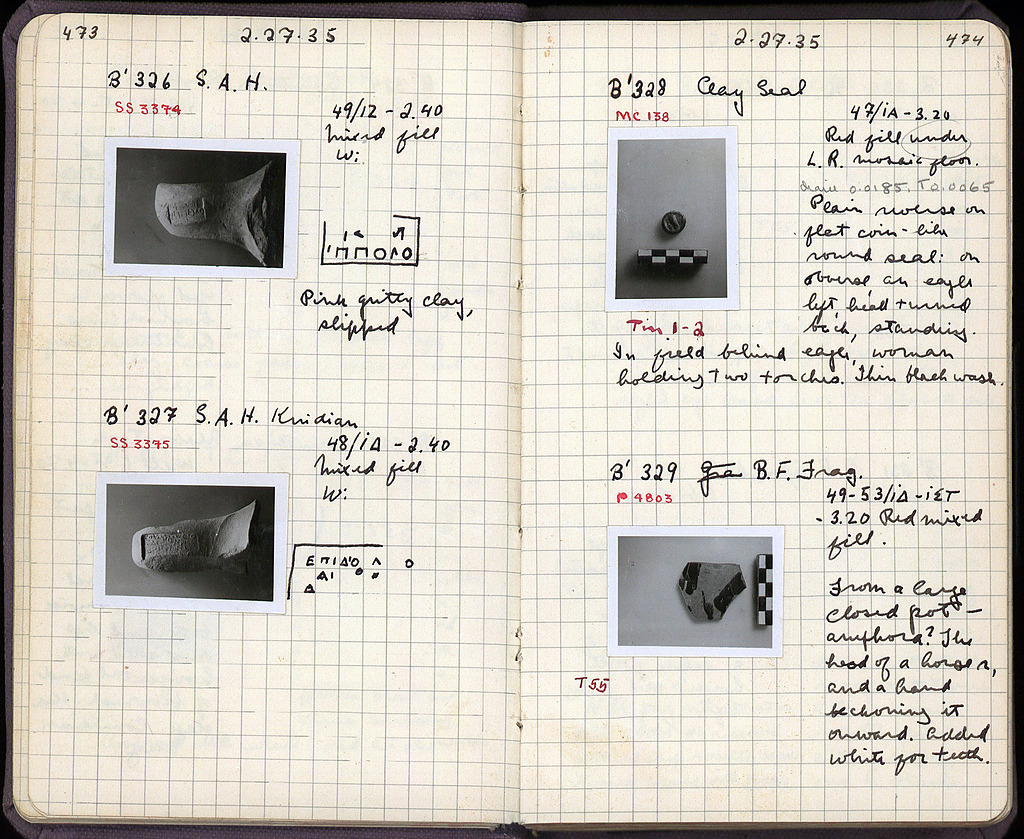 473
2.27.35
B' 326 S.A.H.
SS 3374
49/12 - 2.40
Mixed fill
W:
ΙΠΠΟΛΟ
Pink gritty clay,
slipped
B' 327 S.A.H. Knidian
SS 3375
48/ΙΔ - 2.40
Mixed fill
W:
ΕΠΙΔΟ Λ Ο
ΑΙ Ο
Δ
2.27.35
474
B' 328 Clay Seal
MC 138
47/ΙΑ - 3.20
Red fill under
L.R. mosaic floor.
0.0185, T 0.0065
Plain reverse on
flat coin-like
round seal: on
obverse an eagle
left, head turned
back, standing.
Tin 1-2
In field behind eagle, woman
holding two torches. Thin black wash.
B' 329 B.F. Frag.
P 4803
49-53/ΙΔ - ΙΣΤ
- 3.20 Red mixed
fill.
From a large
closed pot -
amphora? The
head of a horse r,
and a hand
beckoning it
onward. Added
white for teeth.
T 55